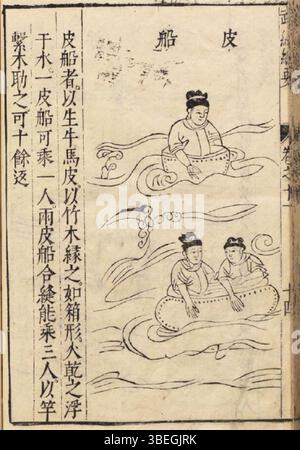 皮船
皮船者以生牛馬皮以竹木緣之如箱形火乾之浮
于水一皮船可乘一人兩皮船合縫能乘三人以竿
繫木助之可十餘返
alamy
Image ID: 3BEGJRK
www.alamy.com